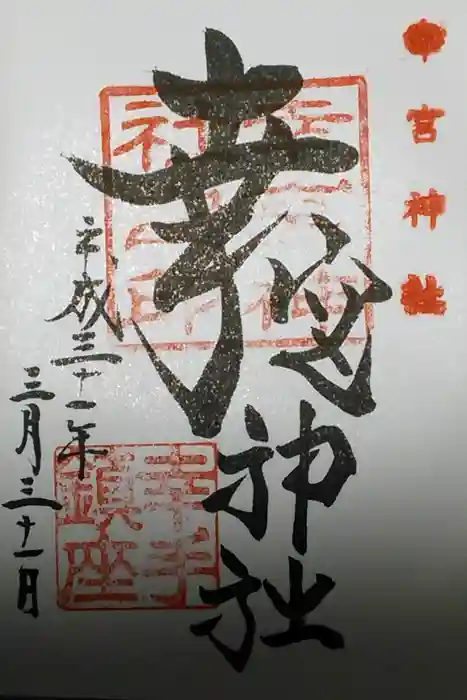 幸宮神社
幸宮神社
幸宮神
社之印
幸手
鎮座
平成三十一年
三月三十一日